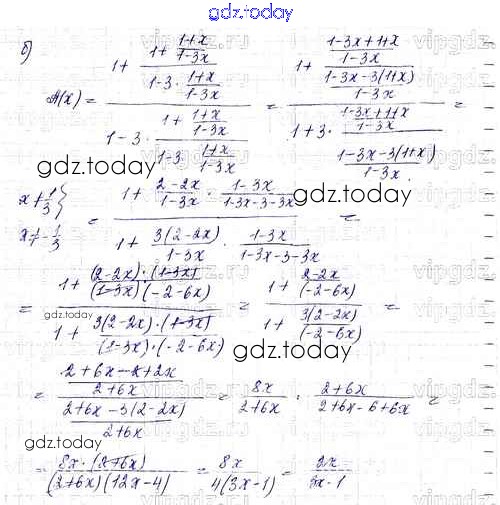 gdz.today
б)
A(x) = (1 + (1 + (1+x)/(1-3x))/(1-3·(1+x)/(1-3x)))/(1-3·(1 + (1+x)/(1-3x))/(1-3·(1+x)/(1-3x))) = (1 + ((1-3x+1+x)/(1-3x))/((1-3x-3(1+x))/(1-3x)))/(1+3·((1-3x+1+x)/(1-3x))/((1-3x-3(1+x))/(1-3x))) =
gdz.today gdz.today
x≠1/3 } x≠-1/3 = (1 + (2-2x)/(1-3x) · (1-3x)/(1-3x-3-3x))/(1 + 3(2-2x)/(1-3x) · (1-3x)/(1-3x-3-3x)) =
= (1 + (2-2x)·(1-3x)/((1-3x)(-2-6x)))/(1 + 3(2-2x)·(1-3x)/((1-3x)·(-2-6x))) = (1 + (2-2x)/(-2-6x))/(1 + 3(2-2x)/(-2-6x)) =
gdz.today
= ((2+6x-2+2x)/(2+6x))/((2+6x-3(2-2x))/(2+6x)) = 8x/(2+6x) · (2+6x)/(2+6x-6+6x) =
gdz.today
= 8x·(2+6x)/((2+6x)(12x-4)) = 8x/(4(3x-1)) = 2x/(3x-1)